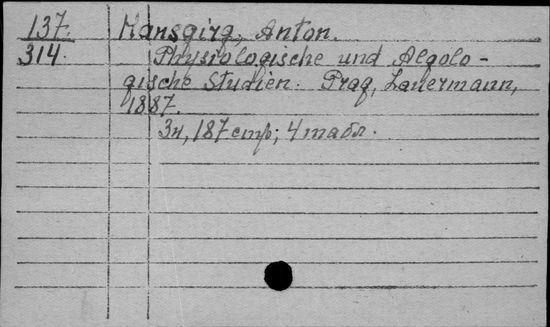 137. Hansgirg, Anton.
314. Physiologische und Algolo-
gische Studien. Prag, Lauermann,
1887.
3н, 187 стр; 4 табл.